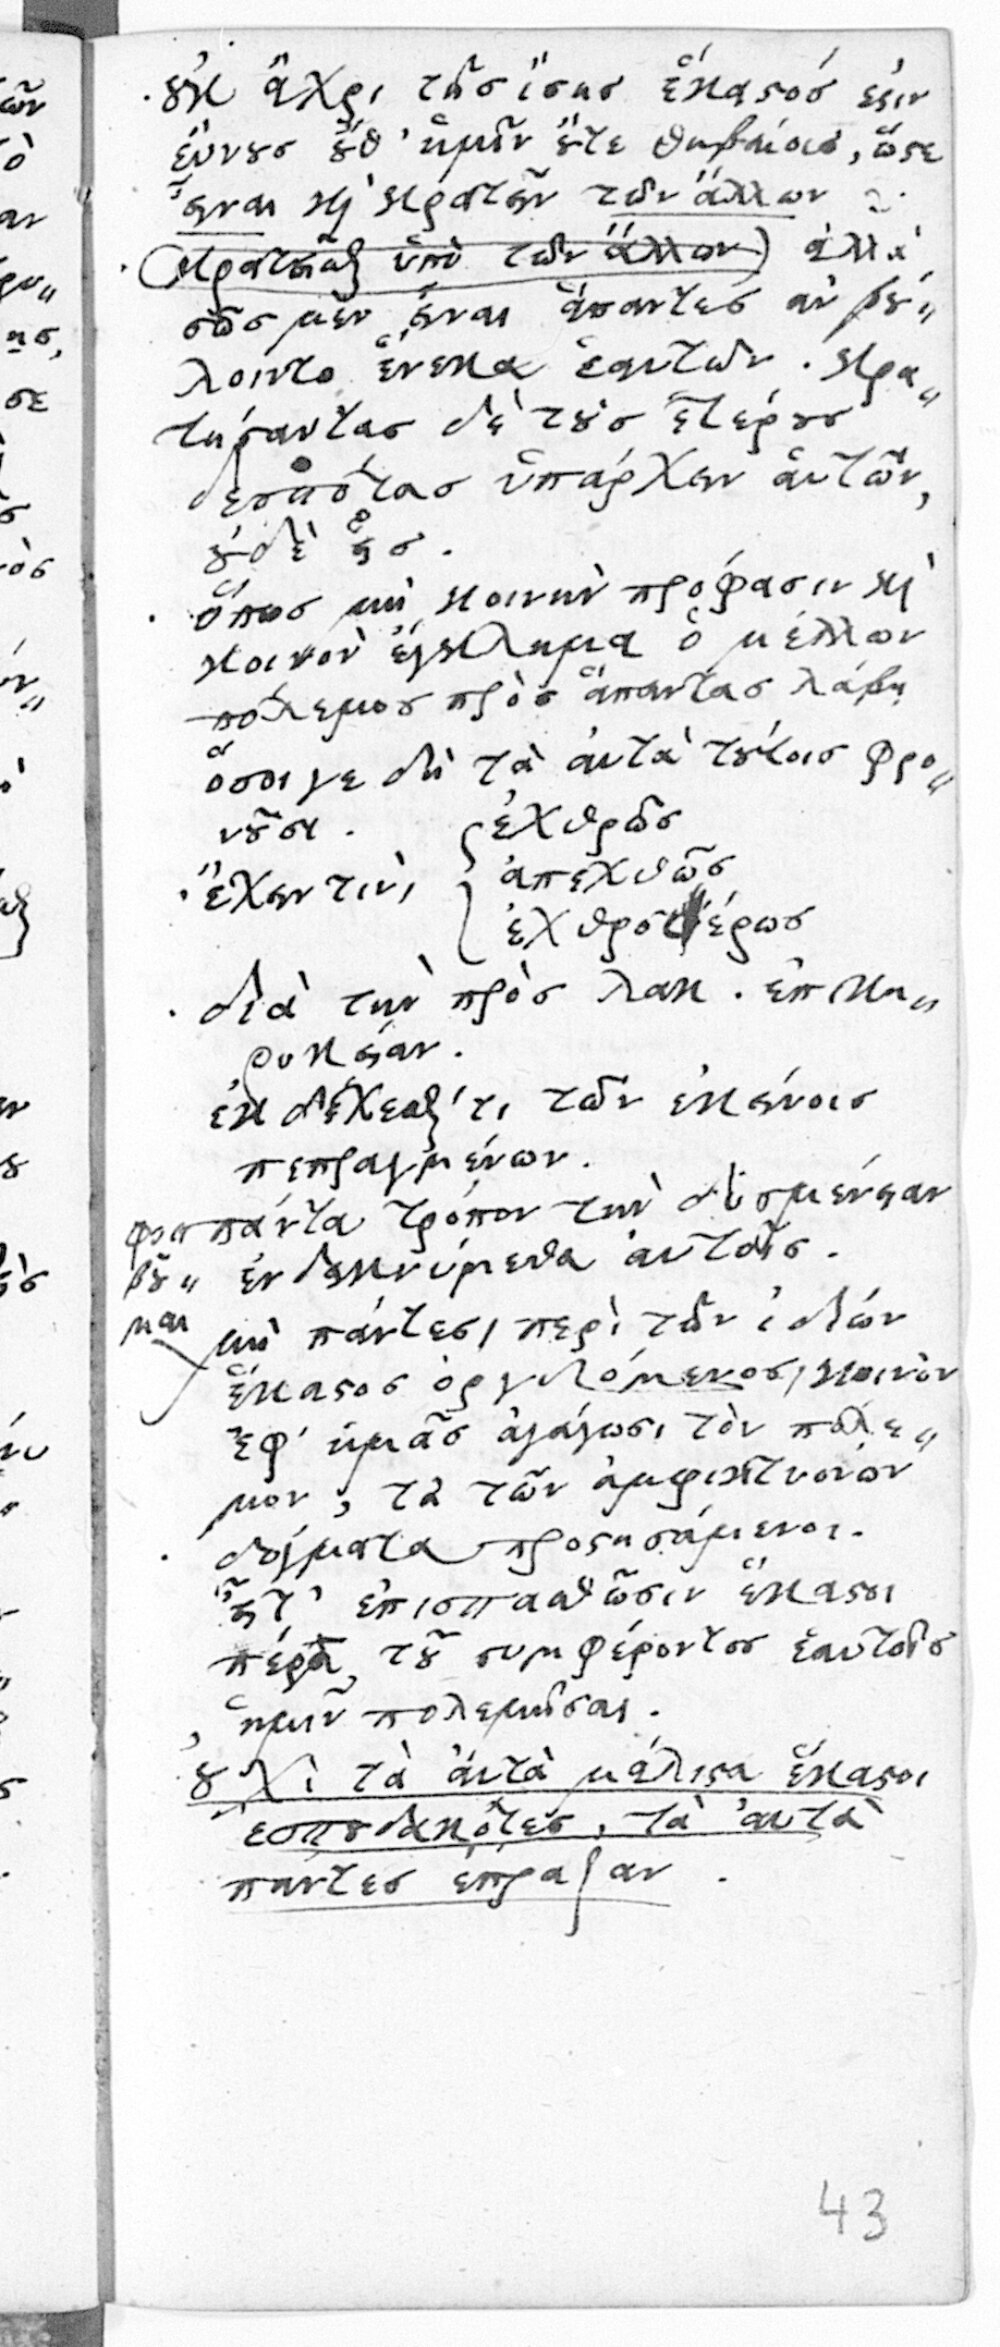 οὐκ ἄχρι τῆς ἴσης ἕκαστός ἐστιν
εὔνους οὔθ' ἡμῖν οὔτε Θηβαίοις, ὥστε
εἶναι καὶ κρατεῖν τῶν ἄλλων
(κρατεῖσθαι ὑπὸ τῶν ἄλλων) ἀλλὰ
σῶς μὲν εἶναι ἅπαντες ἂν βού„
λοιντο ἕνεκα ἑαυτῶν. κρα„
τήσαντας δὲ τοὺς ἑτέρους
δεσπότας ὑπάρχειν αὐτῶν,
οὐδὲ εἷς.
ὅπως μὴ κοινὴν πρόφασιν καὶ
κοινὸν ἔγκλημα ὁ μέλλων
πόλεμος πρὸς ἅπαντας λάβῃ
ὅσοι γε δὴ τὰ αὐτὰ τούτοις φρο„
νοῦσι. ἐχθρῶς
ἔχειν τινὶ ἀπεχθῶς
ἐχθροτέρως
διὰ τὴν πρὸς Λακ. ἐπικη„
ρυκείαν.
ἐκδέχεσθαί τι τῶν ἐκείνοις
πεπραγμένων.
πάντα τρόπον τὴν δυσμένειαν
ἐνδεικνύμεθα αὐτοῖς.
φοβοῦ„
μαι μὴ πάντες, περὶ τῶν ἰδίων
ἕκαστος ὀργιζόμενος, κοινὸν
ἐφ' ἡμᾶς ἀγάγωσι τὸν πόλε„
μον, τὰ τῶν ἀμφικτυόνων
δόγματα προστησάμενοι.
εἶτ' ἐπισπασθῶσιν ἕκαστοι
πέρα τοῦ συμφέροντος ἑαυτοῖς
ἡμῖν πολεμῆσαι.
οὐχὶ τὰ αὐτὰ μάλιστα ἕκαστοι
ἐσπουδακότες, τὰ αὐτὰ
πάντες ἔπραξαν.
43